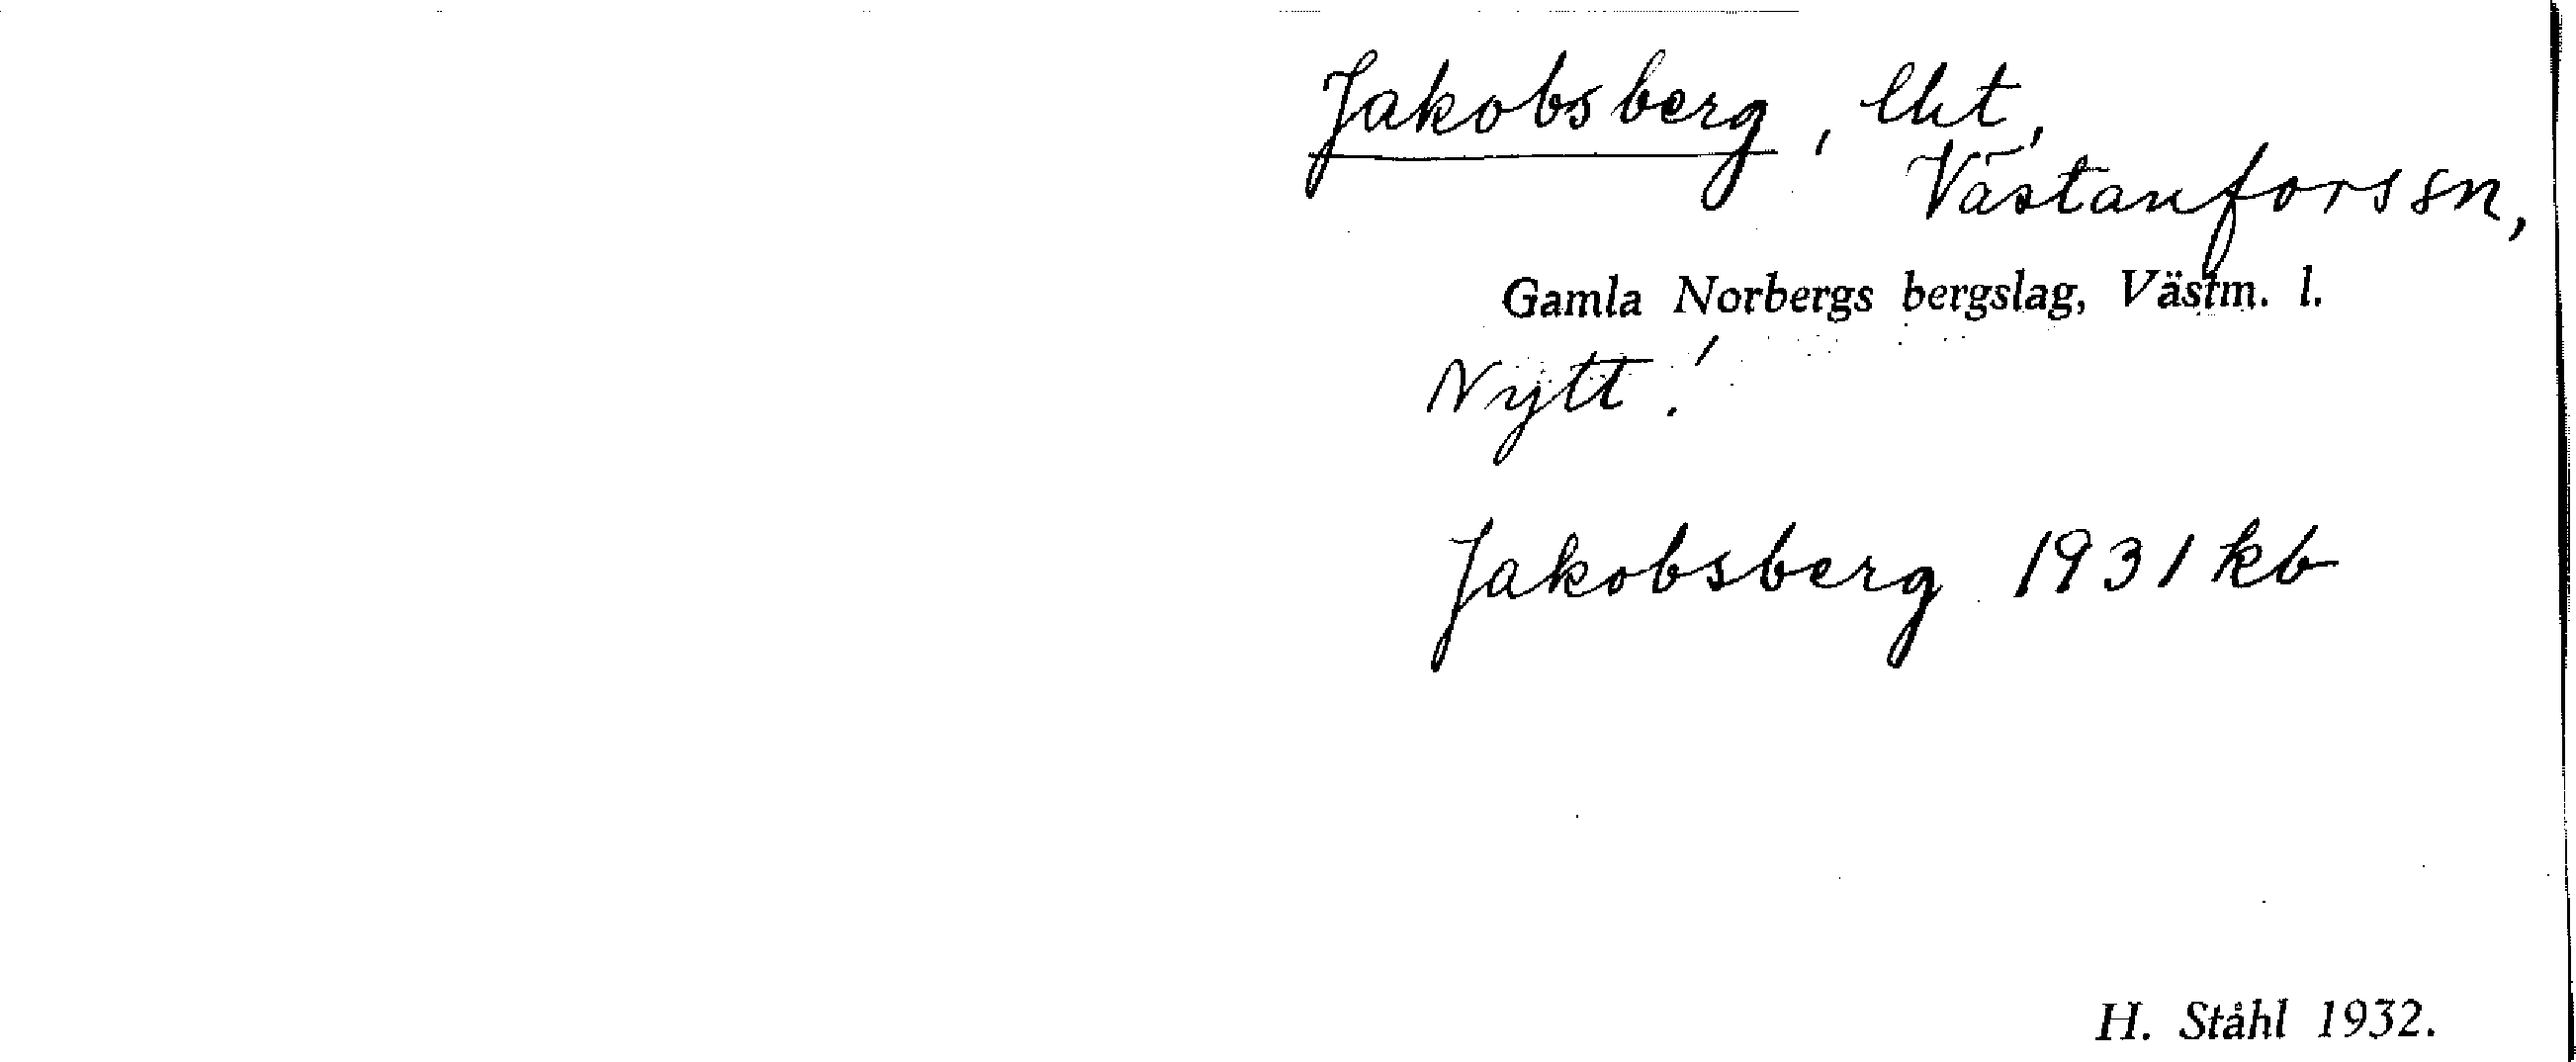 Jakobsberg, lht,
Västanfors sn,
Gamla Norbergs bergslag, Västm. l.
Nytt!
Jakobsberg 1931 kb
H. Ståhl 1932.